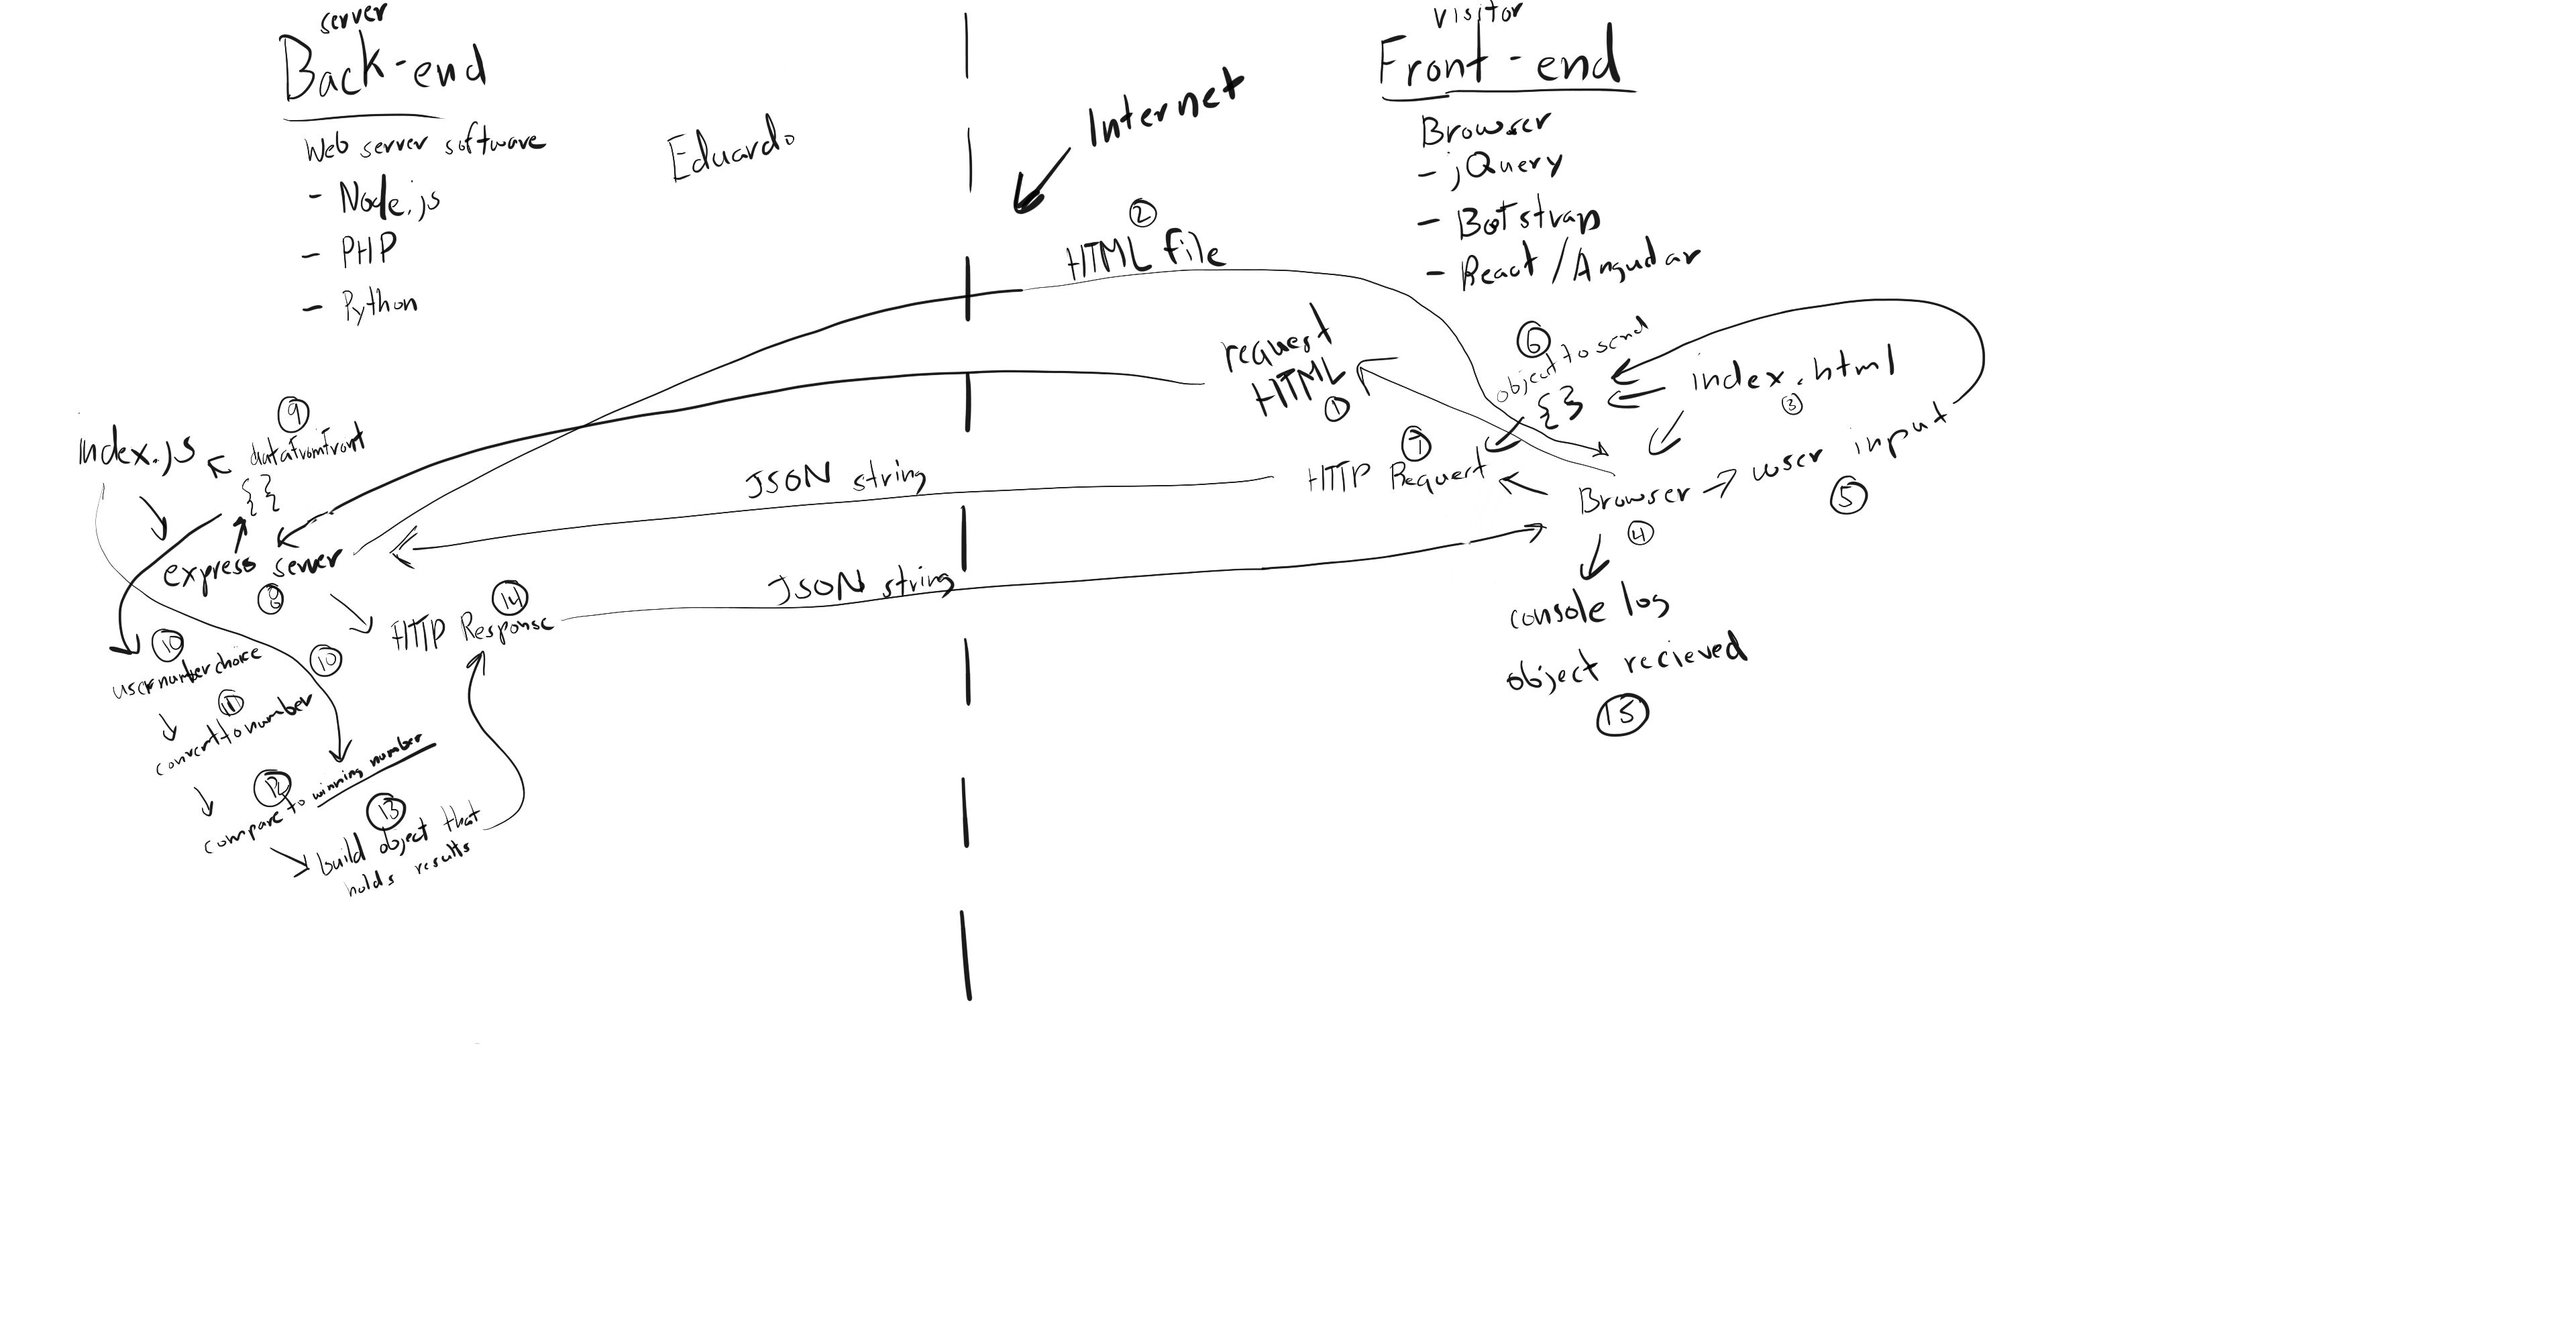 server
Back-end
Web server software
- Node.js
- PHP
- Python
Eduardo
Internet
visitor
Front-end
Browser
- jQuery
- Botstrap
- React/Angular
②
HTML file
request
HTML
①
⑥
object to send
{}
index.html
③
⑦
HTTP Request
Browser → user input
④
⑤
console log
object recieved
⑮
JSON string
JSON string
index.js
⑨
datafromfront
{}
express server
⑧
⑭
HTTP Response
⑩
usernumberchoice
⑩
⑪
converttonumber
⑫
compare to winning number
⑬
build object that
holds results